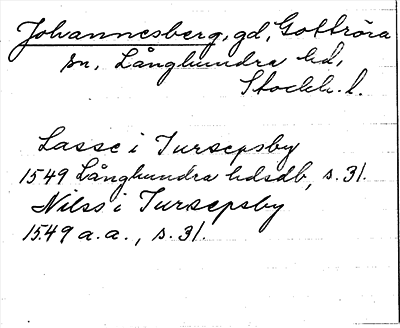 Johannesberg, gd, Gottröra
sn, Långhundra hd,
Stockh. l.
Lasse i Tursepsby
1549 Långhundra hdsdb, s. 31.
Nilss i Tursepsby
1549 a.a., s. 31.